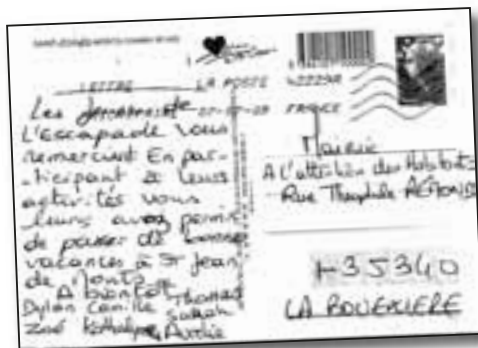 LETTRE
LA POSTE 42229A
07-07-09 FRANCE
Les de
L'Escapade vous
remercient En par-
-ticipant à leurs
activités vous
leurs avez permis
de passer de bonnes
vacances à St Jean
de Monts
A bientôt
Dylan Camille Thomas
Zoé Sarah
Aurélie
Mairie
A l'attention des Habitants
Rue Théophile RÉMOND
35340
LA BOUEXIERE